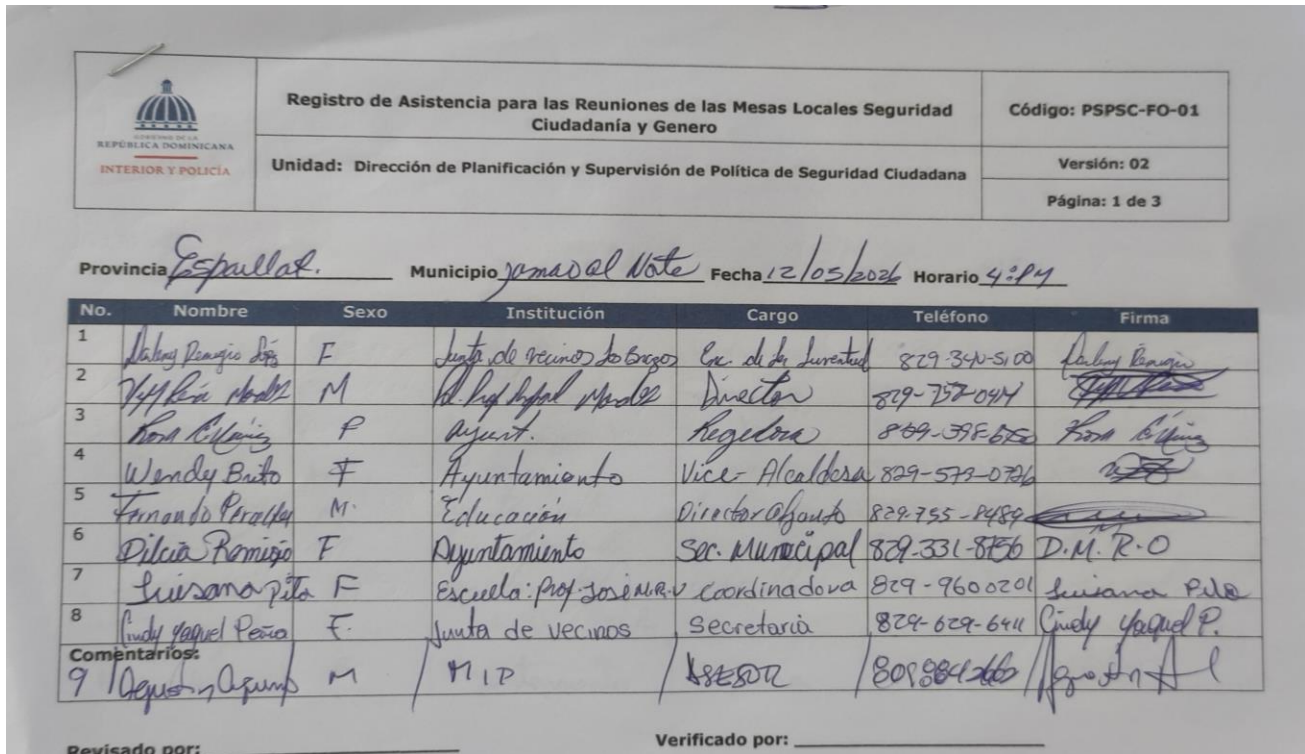 GOBIERNO DE LA
REPÚBLICA DOMINICANA
INTERIOR Y POLICÍA
Registro de Asistencia para las Reuniones de las Mesas Locales Seguridad
Ciudadanía y Genero
Unidad: Dirección de Planificación y Supervisión de Política de Seguridad Ciudadana
Código: PSPSC-FO-01
Versión: 02
Página: 1 de 3
Provincia Espaillat. Municipio Jamao al Norte Fecha 12/05/2026 Horario 4:PM
No. Nombre Sexo Institución Cargo Teléfono Firma
1 Remigio F Junta de vecinos los Brazos Enc. de la Juventud 829-340-5100
2 M Director
3 Rosa F ayunt. Regidora Rosa
4 Wendy Brito F Ayuntamiento Vice-Alcaldesa 829-573-0726
5 Fernando Peralta M. Educación Director adjunto 829-755-8489
6 Dilcia Remigio F Ayuntamiento Sec. Municipal 829-331-8756 D.M.R.O
7 Luisana Pita F Escuela: Prof. José M.R.V Coordinadora 829-9600201 Luisana Pita
8 Cindy Yaquel Peña F. Junta de vecinos Secretaria 829-629-6411 Cindy Yaquel P.
Comentarios:
9 M MIP ASESOR
Revisado por:
Verificado por: